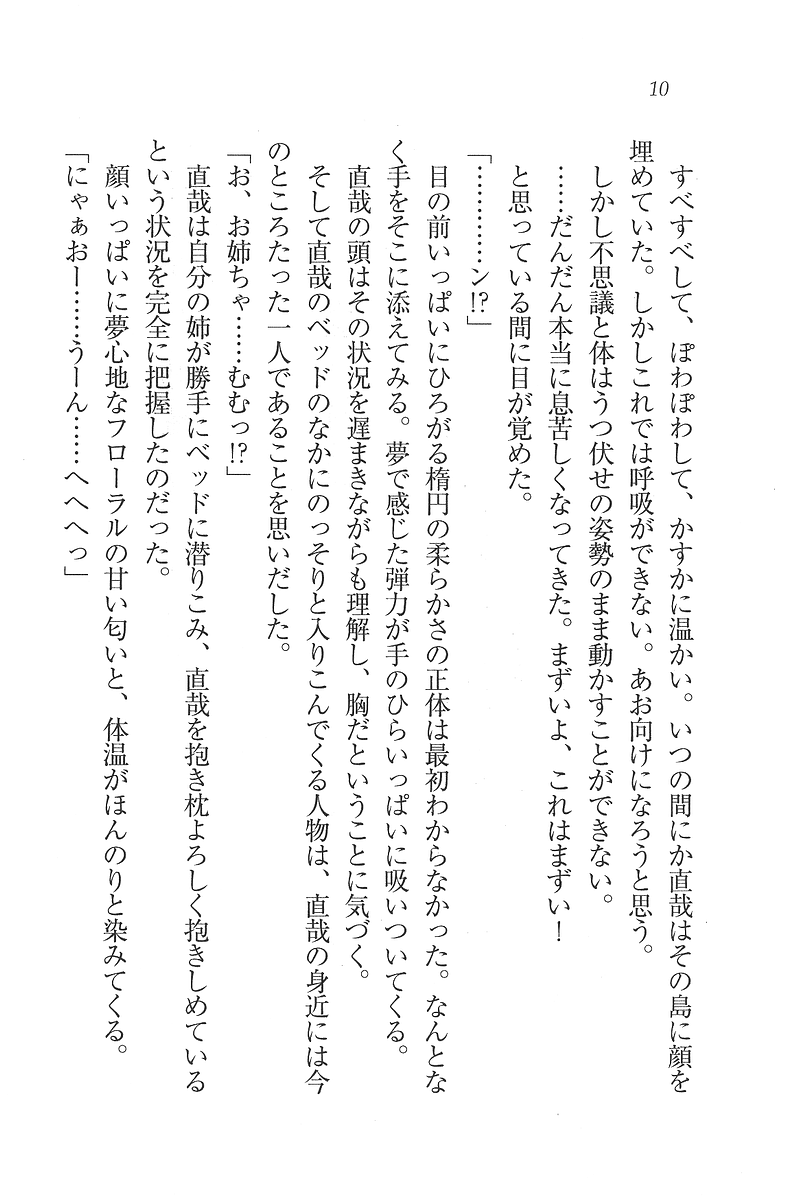 10
すべすべして、ぽわぽわして、かすかに温かい。いつの間にか直哉はその島に顔を
埋めていた。しかしこれでは呼吸ができない。あお向けになろうと思う。
しかし不思議と体はうつ伏せの姿勢のまま動かすことができない。
……だんだん本当に息苦しくなってきた。まずいよ、これはまずい！
と思っている間に目が覚めた。
「…………ン!?」
目の前いっぱいにひろがる楕円の柔らかさの正体は最初わからなかった。なんとな
く手をそこに添えてみる。夢で感じた弾力が手のひらいっぱいに吸いついてくる。
直哉の頭はその状況を遅まきながらも理解し、胸だということに気づく。
そして直哉のベッドのなかにのっそりと入りこんでくる人物は、直哉の身近には今
のところたった一人であることを思いだした。
「お、お姉ちゃ……むむっ!?」
直哉は自分の姉が勝手にベッドに潜りこみ、直哉を抱き枕よろしく抱きしめている
という状況を完全に把握したのだった。
顔いっぱいに夢心地なフローラルの甘い匂いと、体温がほんのりと染みてくる。
「にゃぁおー……うーん……へへへっ」